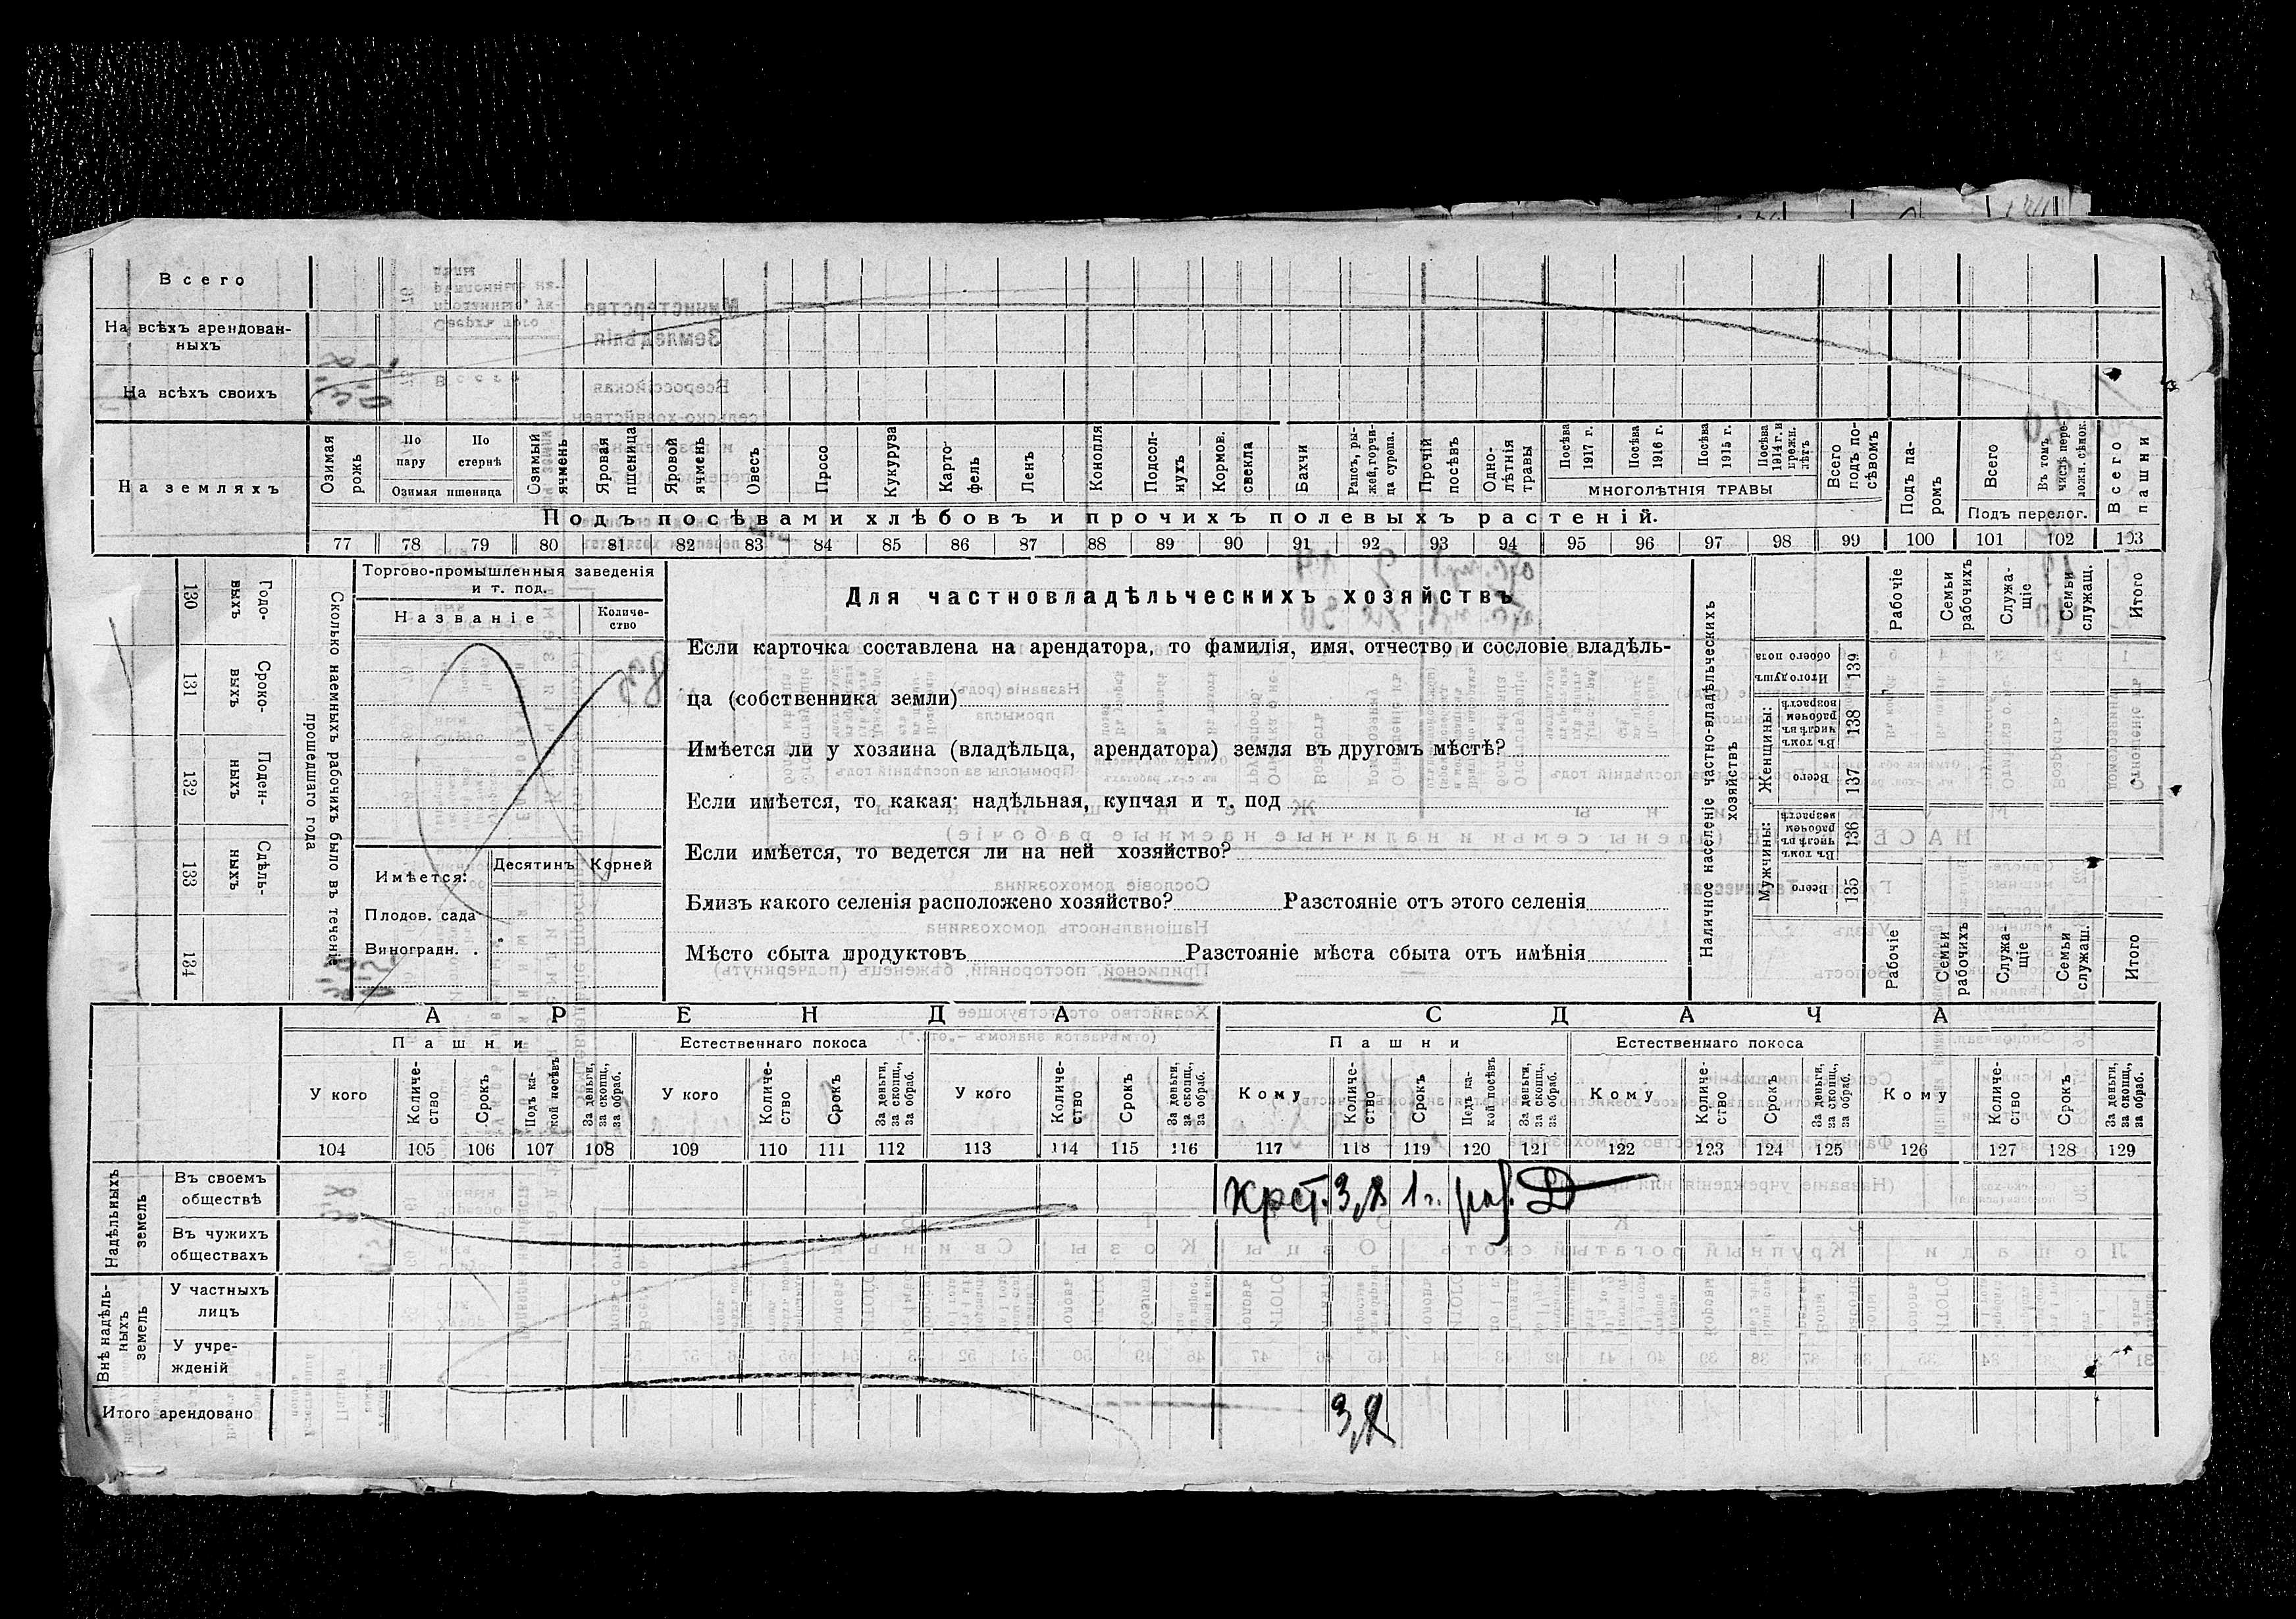 Всего
На всѣхъ арендован-
ныхъ
На всѣхъ своихъ
На земляхъ
Озимая рожь
По пару
По стернѣ
Озимая пшеница
Озимый ячмень
Яровая пшеница
Яровой ячмень
Овесъ
Просо
Кукуруза
Карто-
фель
Ленъ
Конопля
Подсол-
нухъ
Кормов. свекла
Бахчи
Рапсъ, ры-
жей, горчи-
ца сурепа.
Прочій посѣвъ
Одно-
лѣтнія травы
Посѣва 1917 г.
Посѣва 1916 г.
Посѣва 1915 г.
Посѣва 1914 г. и прежн. лѣтъ
МНОГОЛѢТНІЯ ТРАВЫ
Всего подъ по-
сѣвомъ
Подъ па-
ромъ
Всего
Въ томъ числѣ пере-
ложн. сѣнок.
Подъ перелог.
Всего пашни
Подъ посѣвами хлѣбовъ и прочихъ полевыхъ растеній.
77 78 79 80 81 82 83 84 85 86 87 88 89 90 91 92 93 94 95 96 97 98 99 100 101 102 103
130 Годо-
выхъ
131 Сроко-
выхъ
132 Поден-
ныхъ
133 Сдѣль-
ныхъ
134
Сколько наемныхъ рабочихъ было въ теченіе
прошедшаго года
Торгово-промышленныя заведенія
и т. под.
Названіе
Количе-
ство
Имѣется:
Десятинъ
Корней
Плодов. сада
Виноградн. .
Для частновладѣльческихъ хозяйствъ
Если карточка составлена на арендатора, то фамилія, имя, отчество и сословіе владѣль-
ца (собственника земли)
Имѣется ли у хозяина (владѣльца, арендатора) земля въ другомъ мѣстѣ?
Если имѣется, то какая: надѣльная, купчая и т. под
Если имѣется, то ведется ли на ней хозяйство?
Близъ какого селенія расположено хозяйство? Разстояніе отъ этого селенія
Мѣсто сбыта продуктовъ Разстояніе мѣста сбыта отъ имѣнія
Наличное населеніе частно-владѣльческихъ
хозяйствъ
Рабочіе
Семьи рабочихъ
Служа-
щіе
Семьи служащ.
Итого
139 Итого душъ обоего пола
Женщины:
138 Въ томъ числѣ въ рабочем возрастѣ
137 Всего
Мужчины:
136 Въ томъ числѣ въ рабочем возрастѣ
135 Всего
Рабочіе
Семьи рабочихъ
Служа-
щіе
Семьи служащ.
Итого
АРЕНДА
СДАЧА
Пашни
Естественнаго покоса
Пашни
Естественнаго покоса
У кого
Количе-
ство
Срокъ
Подъ ка-
кой посѣвъ
За деньги, за скопщ., за обраб.
У кого
Количе-
ство
Срокъ
За деньги, за скопщ., за обраб.
У кого
Количе-
ство
Срокъ
За деньги, за скопщ., за обраб.
Кому
Количе-
ство
Срокъ
Подъ ка-
кой посѣвъ
За деньги, за скопщ., за обраб.
Кому
Количе-
ство
Срокъ
За деньги, за скопщ., за обраб.
Кому
Количе-
ство
Срокъ
За деньги, за скопщ., за обраб.
104 105 106 107 108 109 110 111 112 113 114 115 116 117 118 119 120 121 122 123 124 125 126 127 128 129
Надѣльныхъ земель
Въ своемъ
обществѣ
крст. 3,8 1 г. Д
Въ чужихъ
обществахъ
Внѣ надѣль-
ныхъ земель
У частныхъ
лицъ
У учре-
жденій
Итого арендовано
3,8